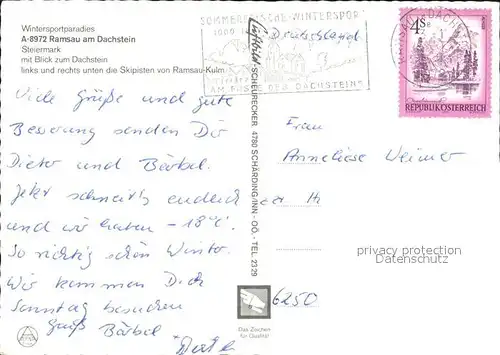 Wintersportparadies
A-8972 Ramsau am Dachstein
Steiermark
mit Blick zum Dachstein
links und rechts unten die Skipisten von Ramsau-Kulm
SOMMERFRISCHE-WINTERSPORT
AM FUSSE DES DACHSTEINS
Luftbild
Deutschland
4S
REPUBLIK ÖSTERREICH
SCHEURECKER, 4780 SCHÄRDING/INN - OÖ. - TEL. 2329
Viele Grüße und gute
Besserung senden Dir
Dieter und Bärbel.
Jetzt schneit's endlich
und wir haben -18°C.
So richtig schön Winter.
Wir kommen Dich
Sonntag besuchen
Gruß Bärbel
Frau
Anneliese Weimer
6250
privacy protection
Datenschutz
Das Zeichen
für Qualität